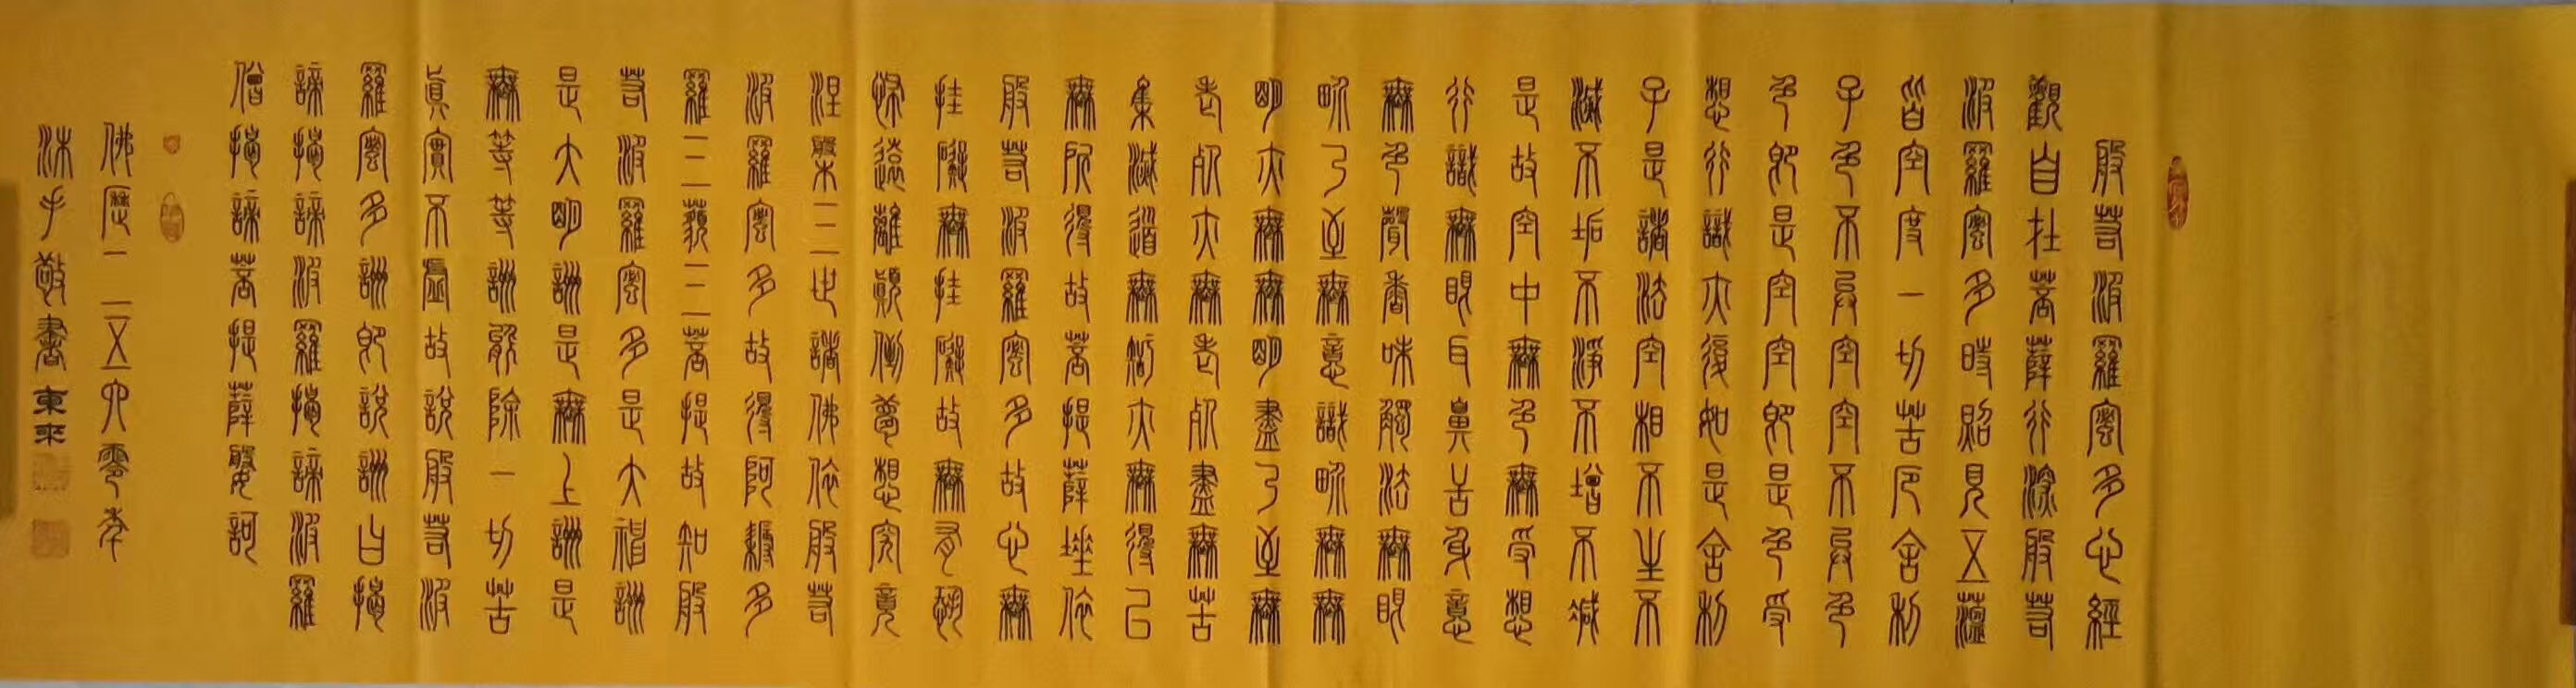 般若波羅蜜多心經
觀自在菩薩行深般若
波羅蜜多時照見五蘊
皆空度一切苦厄舍利
子色不異空空不異色
色即是空空即是色受
想行識亦復如是舍利
子是諸法空相不生不
滅不垢不淨不增不減
是故空中無色無受想
行識無眼耳鼻舌身意
無色聲香味觸法無眼
界乃至無意識界無無
明亦無無明盡乃至無
老死亦無老死盡無苦
集滅道無智亦無得以
無所得故菩提薩埵依
般若波羅蜜多故心無
挂礙無挂礙故無有恐
怖遠離顛倒夢想究竟
涅槃三世諸佛依般若
波羅蜜多故得阿耨多
羅三藐三菩提故知般
若波羅蜜多是大神詶
是大明詶是無上詶是
無等等詶能除一切苦
真實不虛故說般若波
羅蜜多詶即說詶曰揭
諦揭諦波羅揭諦波羅
僧揭諦菩提薩婆訶
佛歷二五六零年
沐手敬書東來